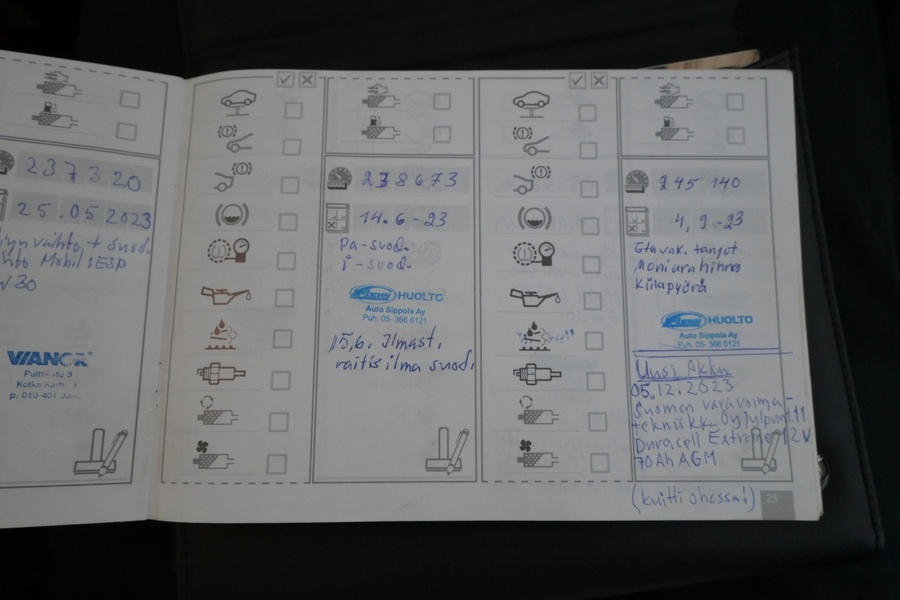 237320
25.05.2023
Mobil 1 ESP
VIANOR
Kotka
p. 010 401
238673
14.6-23
Pa-suod.
i-suod.
HUOLTO
Auto Sippola Ay
Puh. 05- 366 6121
15,6. Ilmast.
raitis ilma suod.
245 140
4,9-23
Etuvak. tangot
Moniurahihna
Kiilapyörä
HUOLTO
Auto Sippola Ay
Puh. 05- 366 6121
Uusi Akku
05.12.2023
Suomen varavoima-
tekniikka Oy
Duracell Extreme 12V
70Ah AGM
(kuitti ohessa!)
25